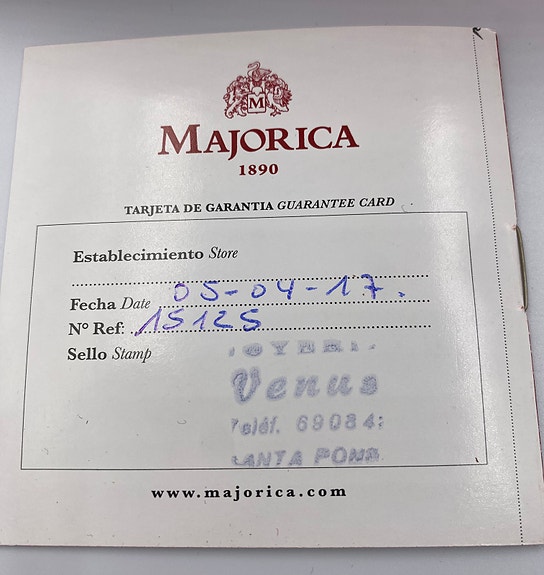 M
MAJORICA
1890
TARJETA DE GARANTIA GUARANTEE CARD
Establecimiento Store
Fecha Date 05-04-17.
Nº Ref: 15125
Sello Stamp
Venus
Teléf. 69084
SANTA PONS
www.majorica.com